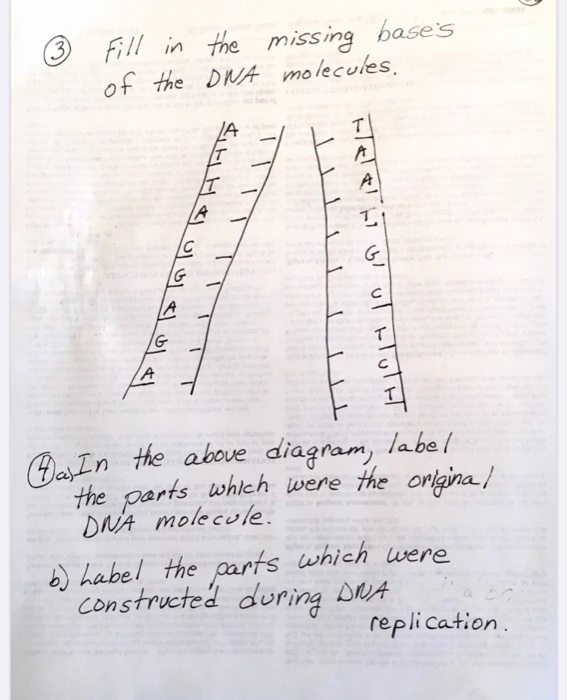 ③ Fill in the missing bases
of the DNA molecules.
A
T
T
A
C
G
A
G
A
T
A
A
T
G
C
T
C
T
④a) In the above diagram, label
the parts which were the original
DNA molecule.
b) Label the parts which were
constructed during DNA
replication.